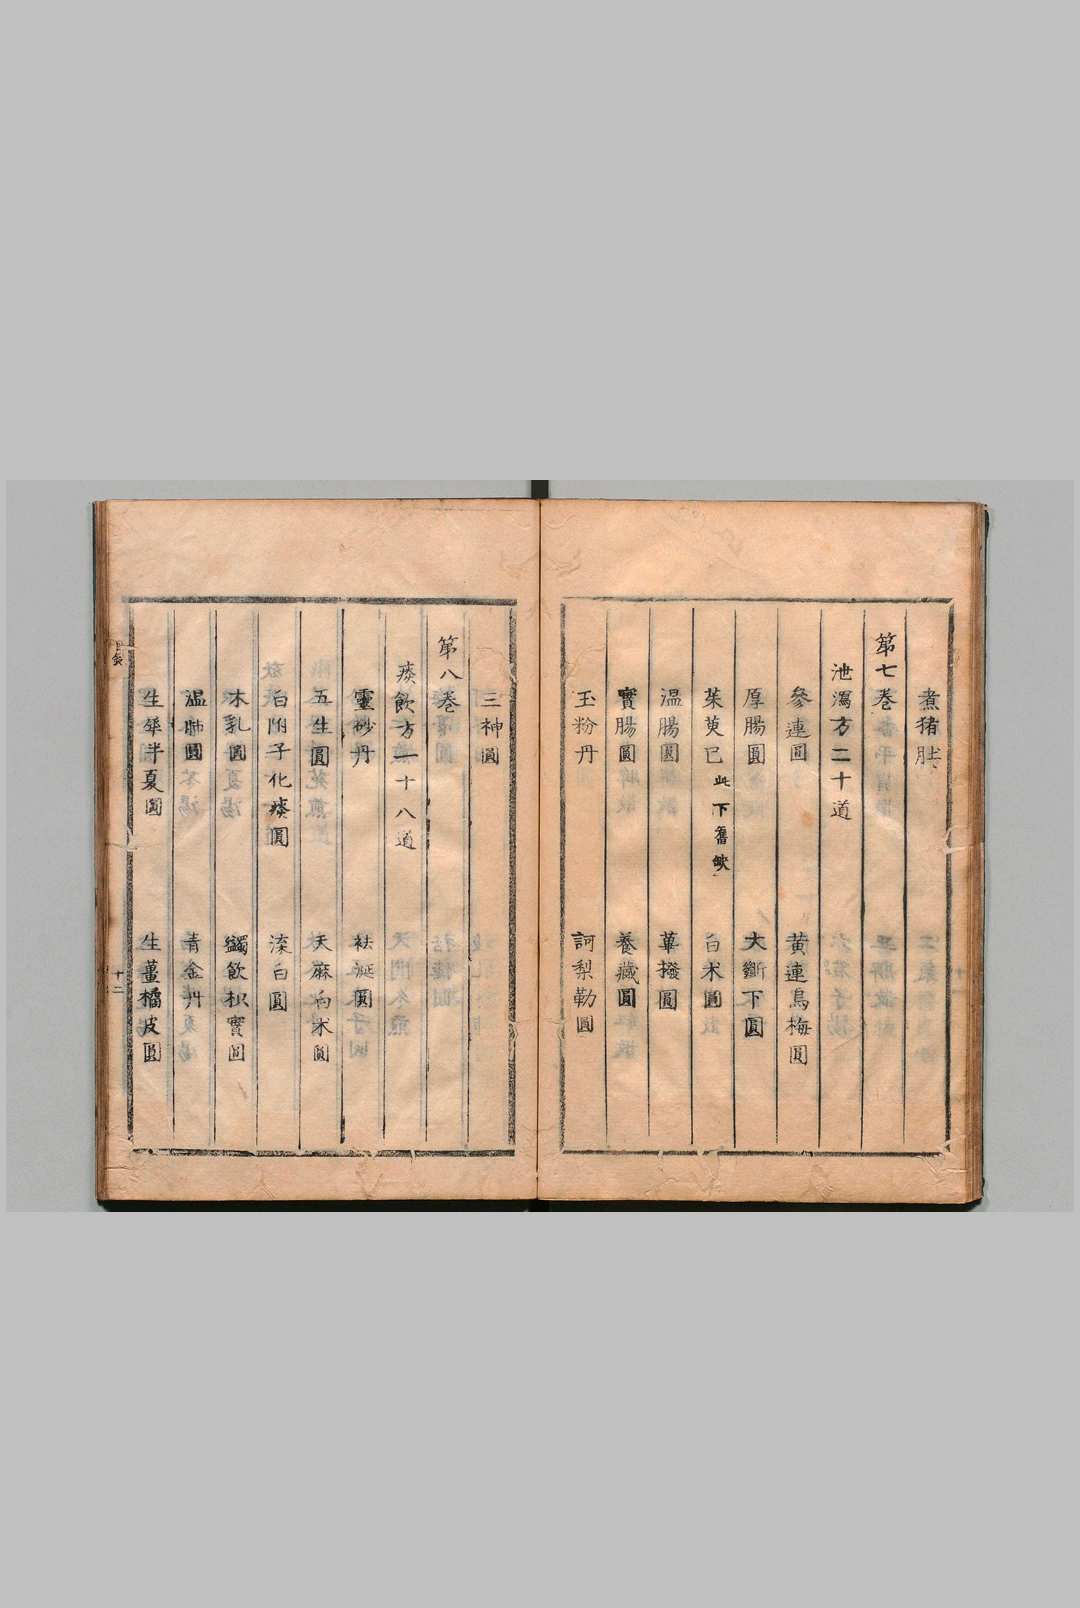 煮猪肚
第七卷
泄瀉方二十道
參連圓 黄連烏梅圓
厚腸圓 大斷下圓
茱萸已此下舊缺 白术圓
温腸圓 蓽撥圓
實腸圓 養藏圓
玉粉丹 訶梨勒圓
三神圓
第八卷
痰飲方一十八道
靈砂丹 袪涎圓
五生圓 天麻白术圓
白附子化痰圓 滚白圓
木乳圓 蠲飲枳實圓
温肺圓 青金丹
生犀半夏圓 生薑橘皮圓
目录 十二